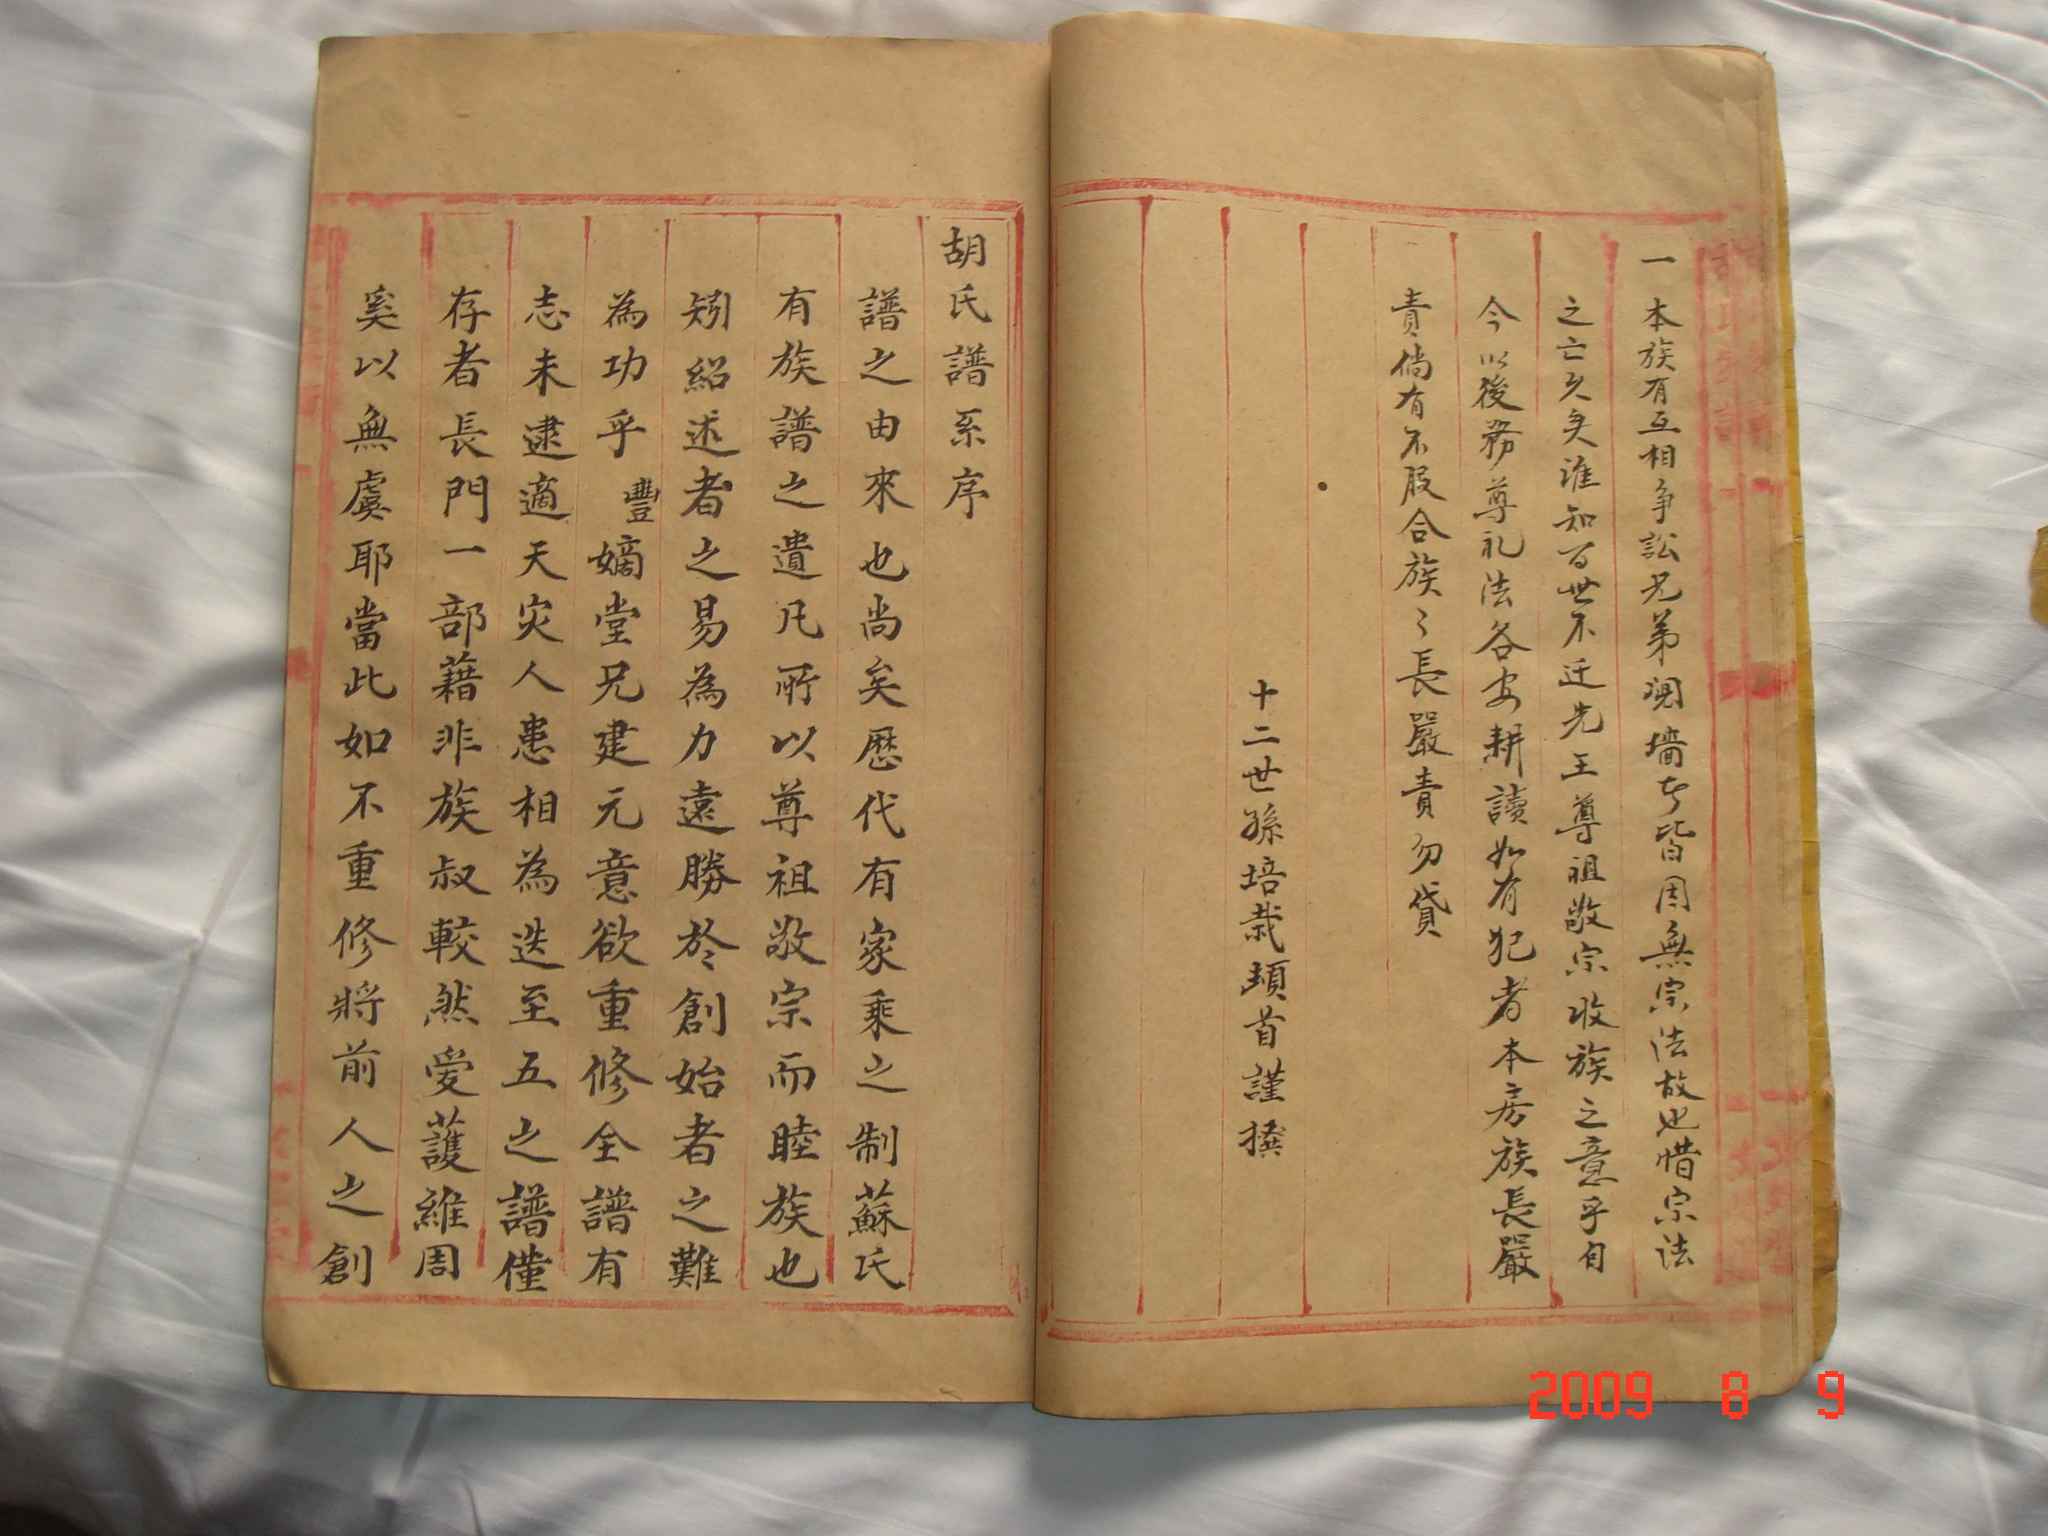 一本族有互相爭訟兄弟鬩墻者皆因無宗法故也惜宗法
之亡久矣誰知百世不迁先王尊祖敬宗收族之意乎自
今以後務尊礼法各安耕讀如有犯者本房族長嚴
責倘有不服合族々長嚴責勿貸
十二世孫培栽頓首謹撰
胡氏譜系序
譜之由來也尚矣歷代有家乘之制蘇氏
有族譜之遺凡所以尊祖敬宗而睦族也
矧紹述者之易為力遠勝於創始者之難
為功乎豐嫡堂兄建元意欲重修全譜有
志未逮適天灾人患相為迭至五之譜僅
存者長門一部藉非族叔較然愛護維周
奚以無虞耶當此如不重修將前人之創
2009 8 9